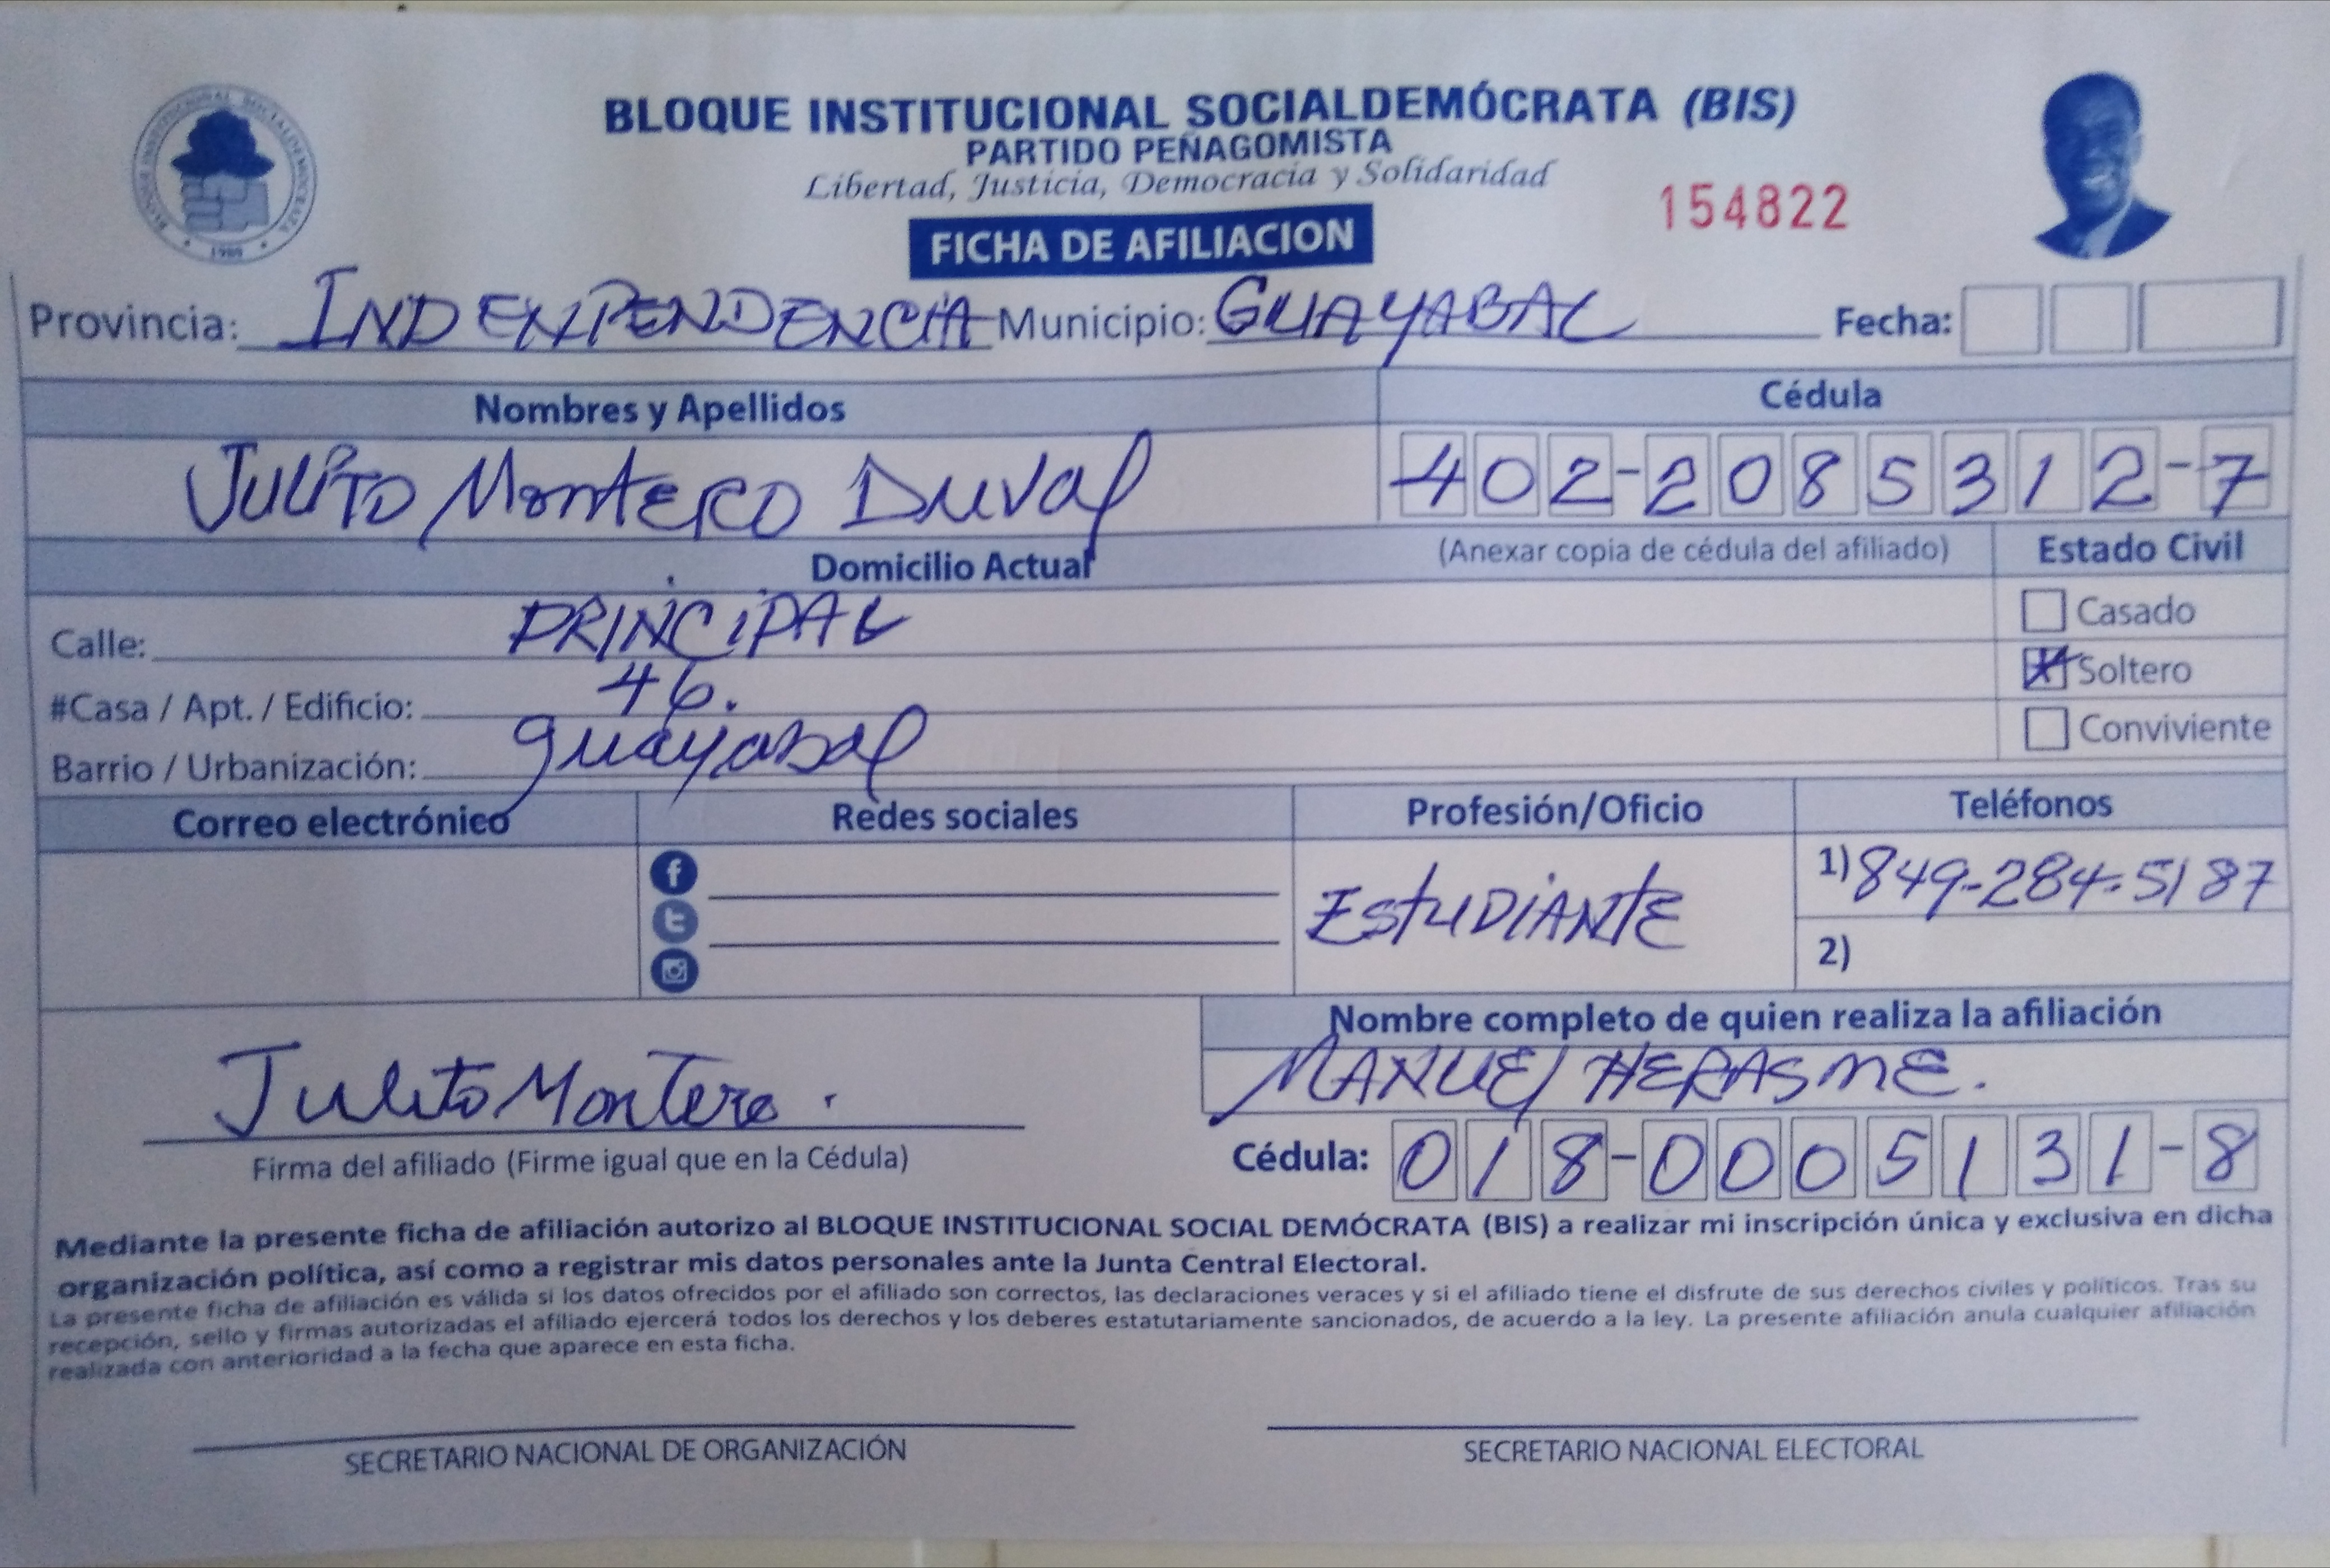 BLOQUE INSTITUCIONAL SOCIALDEMOCRATA
1989
BLOQUE INSTITUCIONAL SOCIALDEMÓCRATA (BIS)
PARTIDO PEÑAGOMISTA
Libertad, Justicia, Democracia y Solidaridad
154822
FICHA DE AFILIACION
Provincia: INDENPENDENCIA Municipio: GUAYABAL Fecha:
Nombres y Apellidos Cédula
JULITO MONTERO DUVAL 402-2085312-7
Domicilio Actual (Anexar copia de cédula del afiliado) Estado Civil
Calle: PRINCIPAL Casado
#Casa / Apt. / Edificio: 46. Soltero
Barrio / Urbanización: guayabal Conviviente
Correo electrónico Redes sociales Profesión/Oficio Teléfonos
ESTUDIANTE 1) 849-284-5187
2)
Nombre completo de quien realiza la afiliación
Julito Montero. MANUEL HERASME.
Firma del afiliado (Firme igual que en la Cédula) Cédula: 018-0005131-8
Mediante la presente ficha de afiliación autorizo al BLOQUE INSTITUCIONAL SOCIAL DEMÓCRATA (BIS) a realizar mi inscripción única y exclusiva en dicha
organización política, así como a registrar mis datos personales ante la Junta Central Electoral.
La presente ficha de afiliación es válida si los datos ofrecidos por el afiliado son correctos, las declaraciones veraces y si el afiliado tiene el disfrute de sus derechos civiles y políticos. Tras su
recepción, sello y firmas autorizadas el afiliado ejercerá todos los derechos y los deberes estatutariamente sancionados, de acuerdo a la ley. La presente afiliación anula cualquier afiliación
realizada con anterioridad a la fecha que aparece en esta ficha.
SECRETARIO NACIONAL DE ORGANIZACIÓN SECRETARIO NACIONAL ELECTORAL